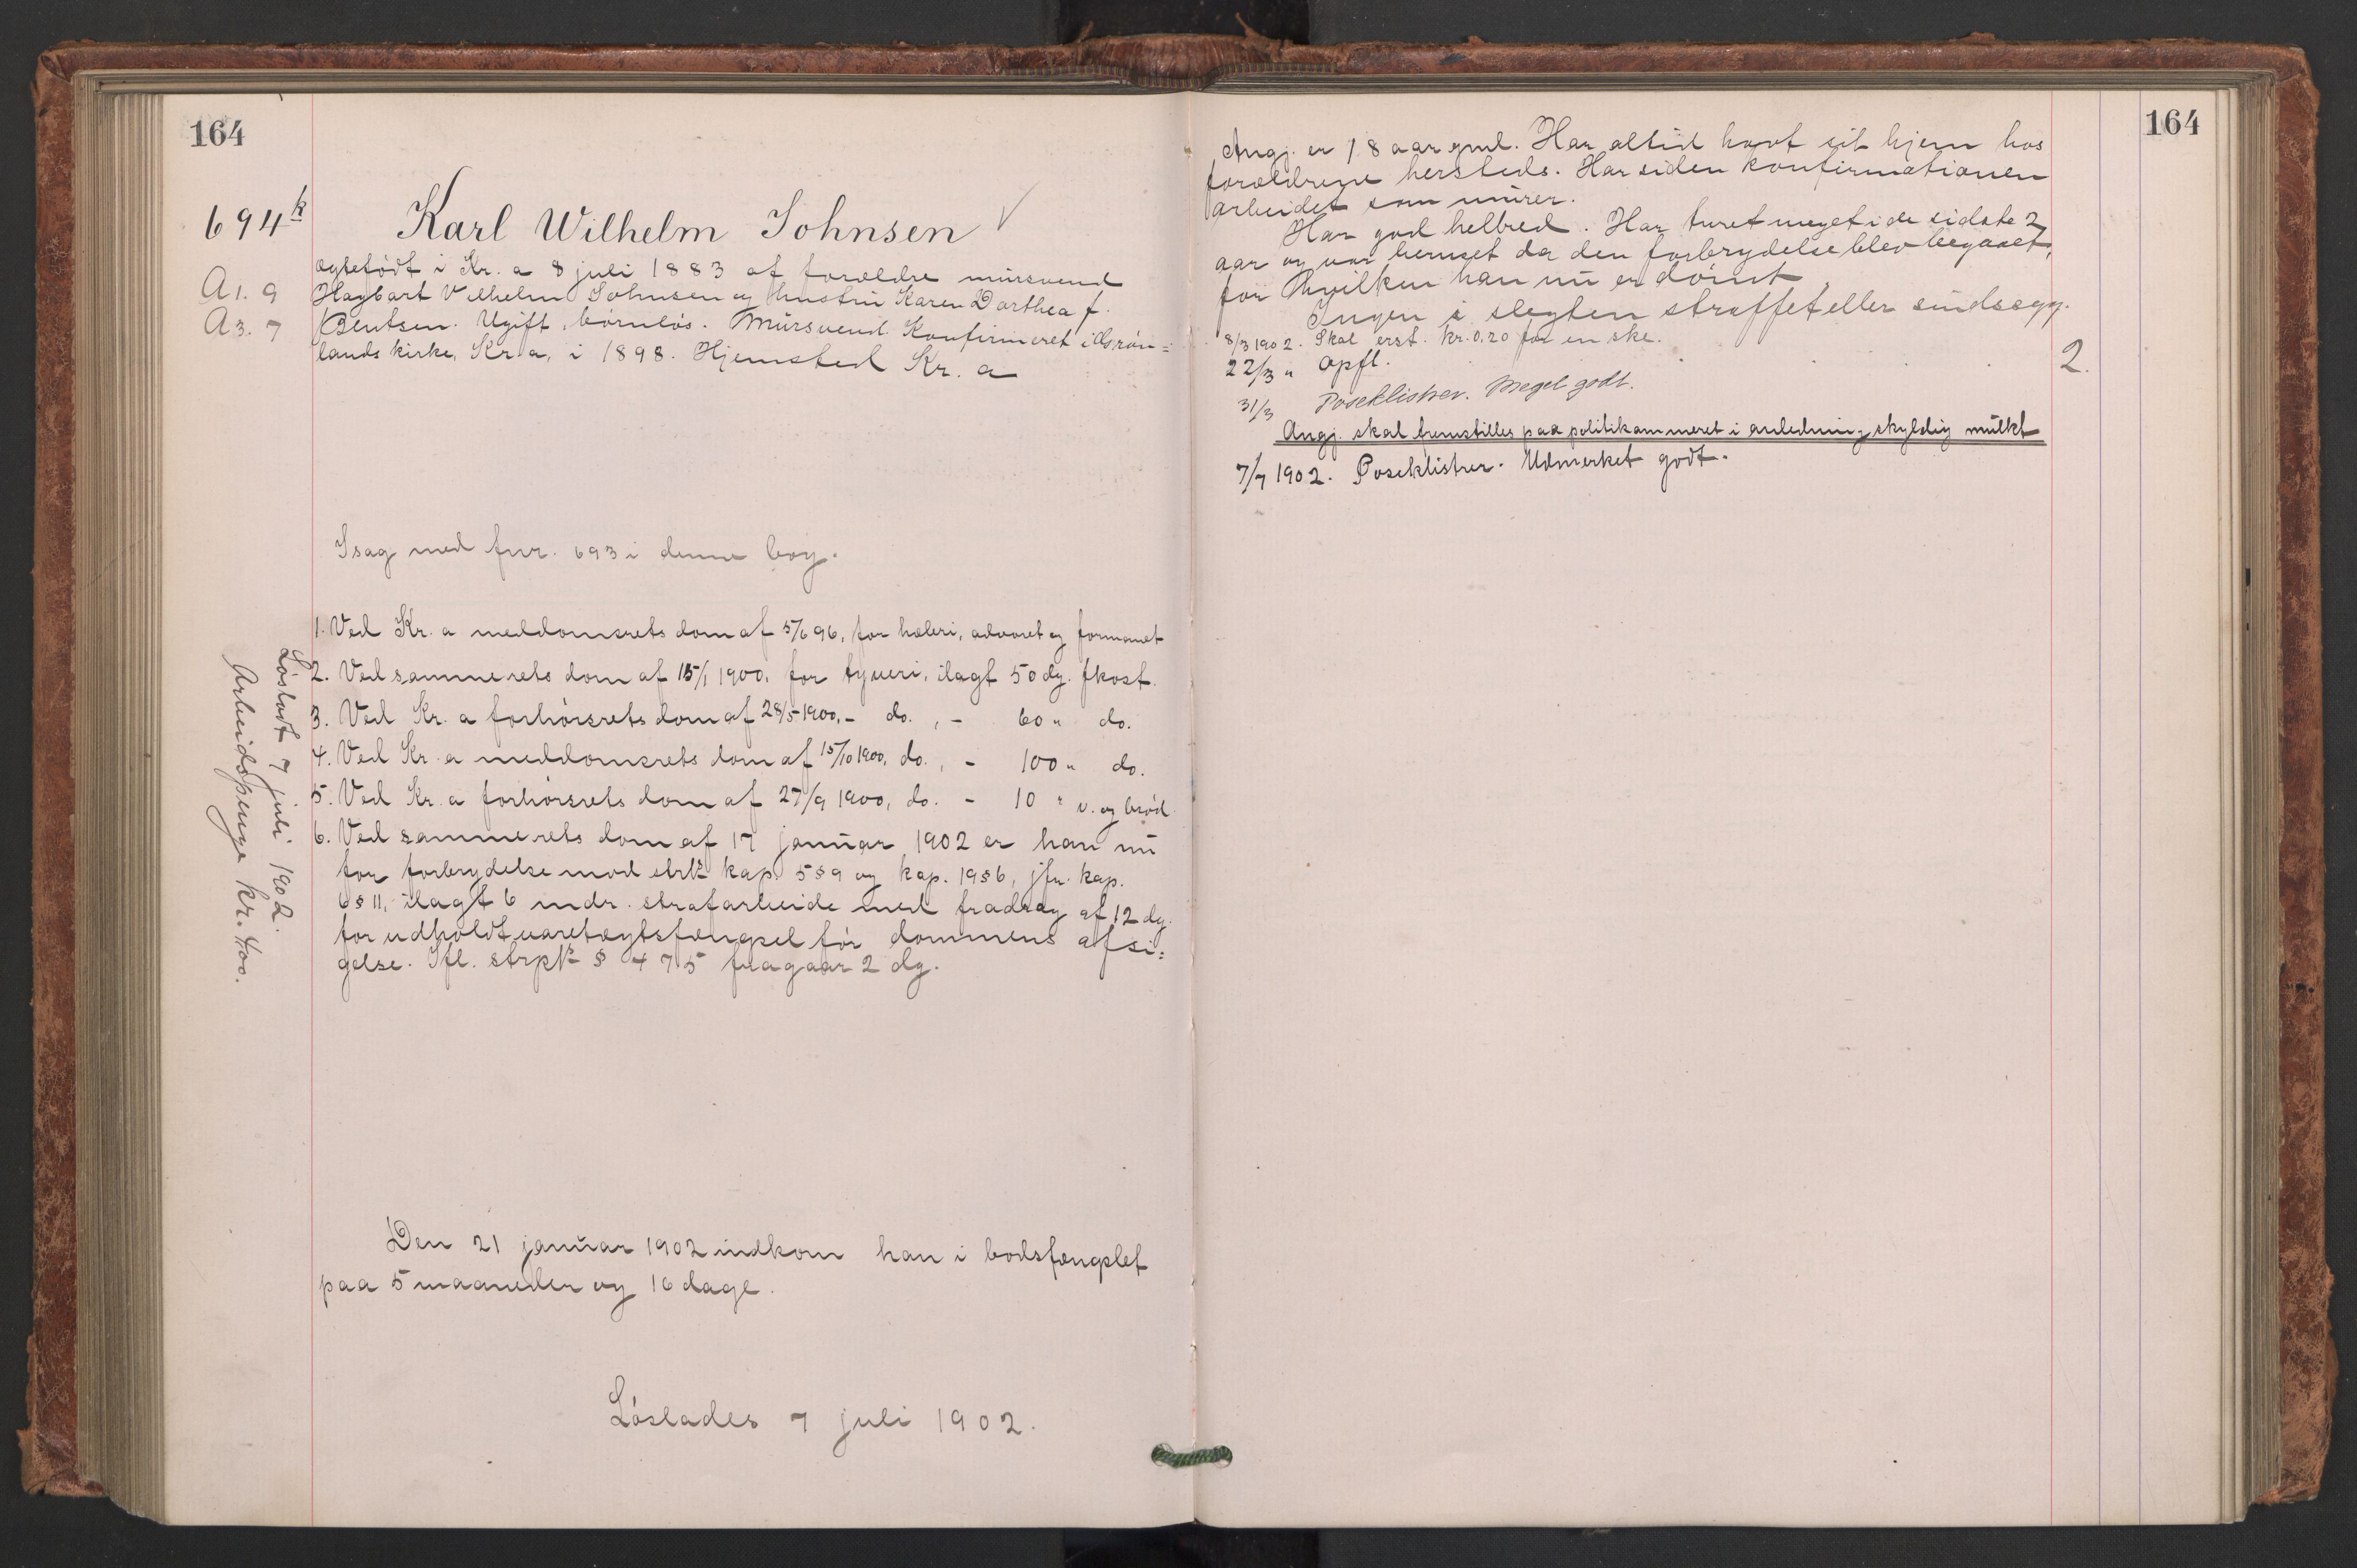 164
694k
Karl Wilhelm Johnsen
A1. 9
A3. 7
ægtefødt i Kr.a 8 juli 1883 af forældre mursvend
Hagbart Vilhelm Johnsen og hustru Karen Dorthea f.
Bentsen. Ugift, børnløs. Mursvend. Konfirmeret i Grøn=
lands kirke, Kr.a, i 1898. Hjemsted Kr.a
I sag med fnr. 693 i denne bog.
1. Ved Kr.a meddomsrets dom af 5/6 96, for hæleri, advaret og formanet
2. Ved samme rets dom af 15/1 1900, for tyveri, ilagt 50 dg. fkost.
3. Ved Kr.a forhørsrets dom af 28/5 1900, - do., - 60 " do.
4. Ved Kr.a meddomsrets dom af 15/10 1900, do., - 100 " do.
5. Ved Kr.a forhørsrets dom af 27/9 1900, do. - 10 " v. og brød
6. Ved samme rets dom af 17 januar 1902 er han nu
for forbrydelse mod strl. kap. 5 § 9 og kap. 19 § 6, jfr. kap.
6 § 11, ilagt 6 mdr. strafarbeide med fradrag af 12 dg.
for udholdt varetægtsfængsel før dommens afsi=
gelse. Ifl. strpl. § 475 fragaar 2 dg.
Løsladt 7 juli 1902.
Arbeidspenge kr. 4.00.
Den 21 januar 1902 indkom han i bodsfængslet
paa 5 maaneder og 16 dage.
Løslades 7 juli 1902.
164
Angj. er 18 aar gml. Har altid havt sit hjem hos
forældrene hersteds. Har siden konfirmationen
arbeidet som murer.
Har god helbred. Har turet meget i de sidste 2
aar og var beruset da den forbrydelse blev begaaet,
for hvilken han nu er dømt.
Ingen i slegten straffet eller sindssyg.
8/3 1902. Skal erst. kr. 0,20 for en ske.
22/3 " Opfl. 2.
31/3 Poseklistrer. Meget godt.
Angj. skal fremstilles paa politikammeret i anledning skyldig mulkt
7/7 1902. Poseklistrer. Udmerket godt.